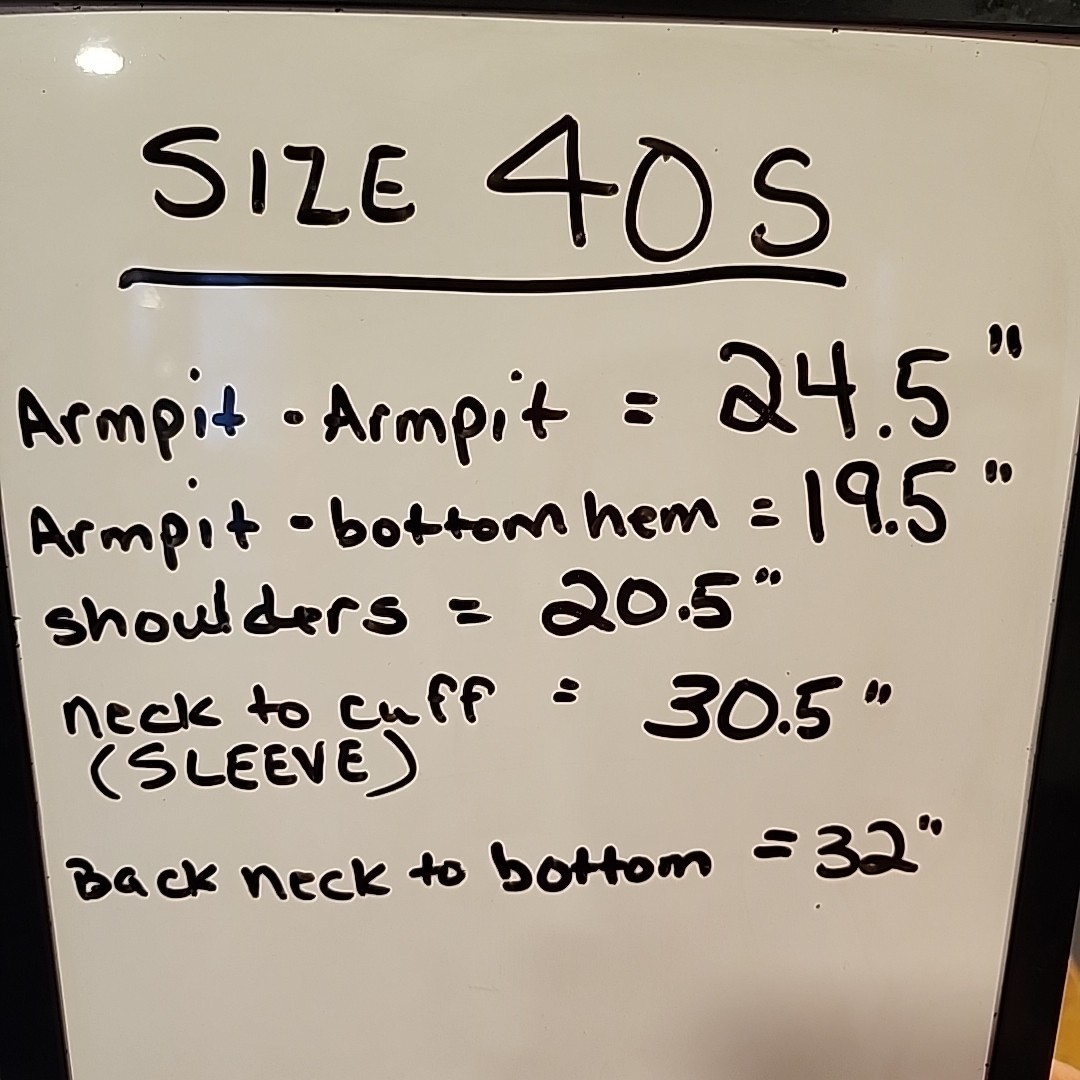 SIZE 40S
Armpit - Armpit = 24.5"
Armpit - bottom hem = 19.5"
shoulders = 20.5"
neck to cuff = 30.5"
(SLEEVE)
Back neck to bottom = 32"